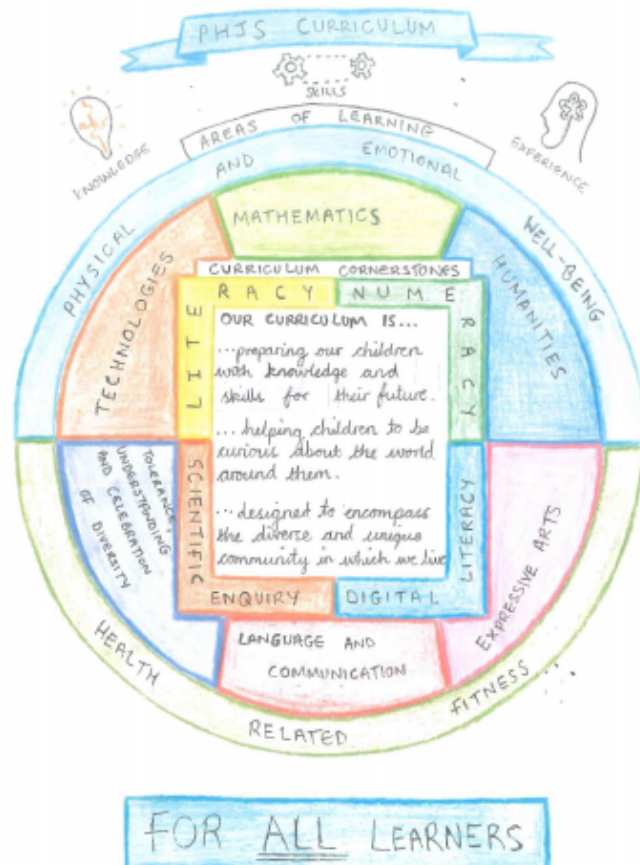 PHJS CURRICULUM
SKILLS
KNOWLEDGE
AREAS OF LEARNING
EXPERIENCE
PHYSICAL AND EMOTIONAL WELL-BEING
MATHEMATICS
TECHNOLOGIES
HUMANITIES
CURRICULUM CORNERSTONES
LITERACY
NUMERACY
OUR CURRICULUM IS...
...preparing our children
with knowledge and
skills for their future.
...helping children to be
curious about the world
around them.
...designed to encompass
the diverse and unique
community in which we live
SCIENTIFIC
ENQUIRY
DIGITAL
LITERACY
TOLERANCE
UNDERSTANDING
AND CELEBRATION
OF DIVERSITY
EXPRESSIVE ARTS
LANGUAGE AND
COMMUNICATION
HEALTH RELATED FITNESS
FOR ALL LEARNERS